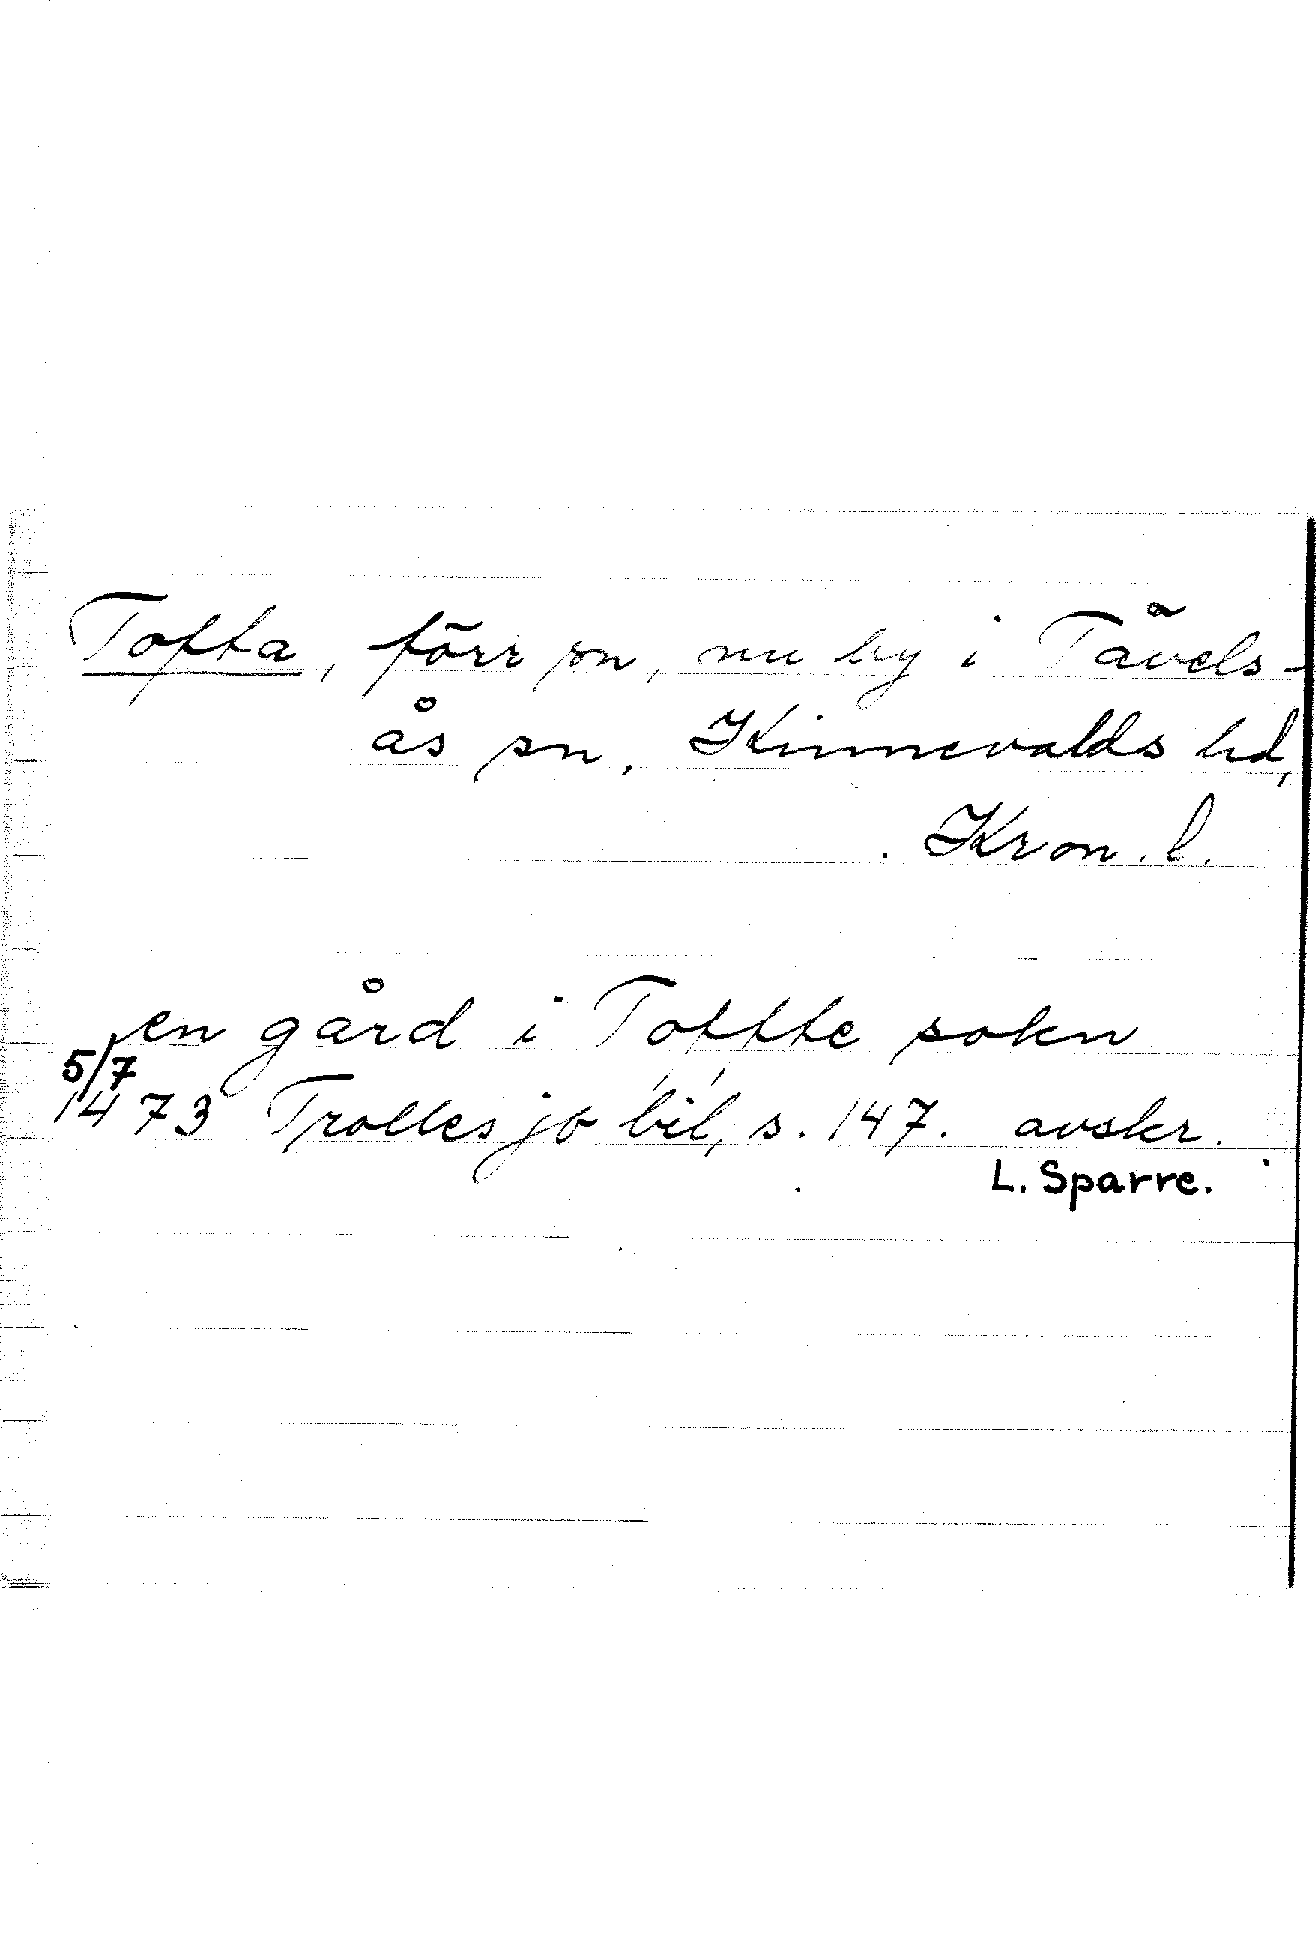 Tofta, förr sn, nu by i Tävels-
ås sn, Kinnevalds hd,
Kron. l.
en gård i Toffte sokn
5/7
1473 Trolles jb bil, s. 147. avskr.
L. Sparre.